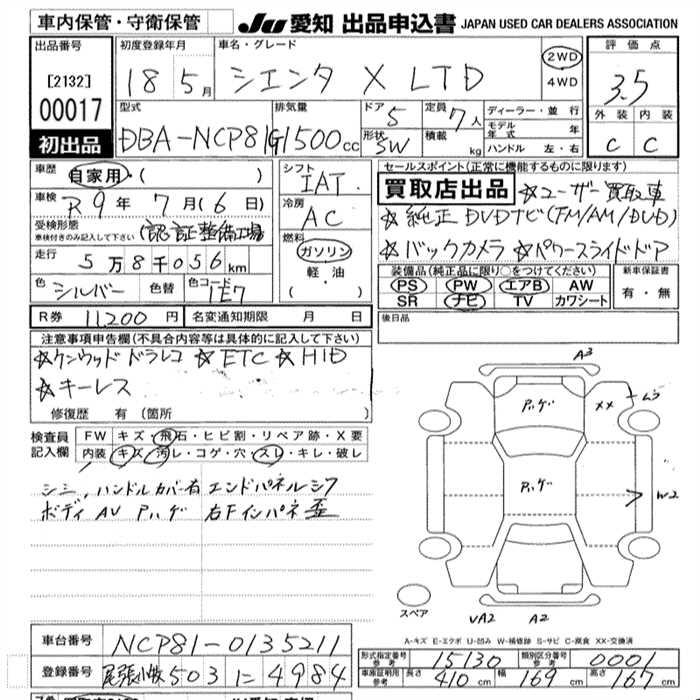 車内保管・守衛保管
JU 愛知 出品申込書 JAPAN USED CAR DEALERS ASSOCIATION
出品番号 初度登録年月 車名・グレード 評価点
[2132] 18 5月 シエンタ X LTD 2WD 4WD 3.5
00017 型式 排気量 ドア 5 定員 7人 ディーラー・並行 外装 内装
初出品 DBA-NCP81G 1500cc 形状 SW 積載 kg モデル年式 年 ハンドル 左・右 C C
車歴 自家用・( ) シフト IAT セールスポイント(正常に機能するものに限ります)
車検 R9年 7月(6日) 冷房 AC 買取店出品 ☆ユーザー買取車
受検形態 車検付きのみ記入して下さい (認証整備工場 燃料 ガソリン 軽・油 ( ) ☆純正DVDナビ(FM/AM/DVD)
走行 5万8千056km ☆バックカメラ ☆パワースライドドア
色 シルバー 色替 色コード 1E7 装備品(純正品に限り○をつけてください) 新車保証書
PS PW エアB AW 有・無
SR ナビ TV カワシート
R券 11200円 名変通知期限 月 日 後日品
注意事項申告欄(不具合内容等は具体的に記入して下さい)
☆ケンウッドドラレコ ☆ETC ☆HID
☆キーレス
修復歴 有(箇所
検査員記入欄 FW キズ・飛石・ヒビ割・リペア跡・X要
内装 キズ・汚レ・コゲ・穴・スレ・キレ・破レ
シミ,ハンドルカバー有 エンドパネルシワ
ボディAV Pハゲ 右Fインパネ歪
A3
Pハゲ XX
Pハゲ W2
スペア VA2 A2
A-キズ E-エクボ U-凹み W-補修跡 S-サビ C-腐食 XX-交換済
車台番号 NCP81-0135211
登録番号 尾張小牧503に4984
形式指定番号 参考 15130 類別区分番号 参考 0001
車庫証明用 参考 長さ 410cm 幅 169cm 高さ 167cm